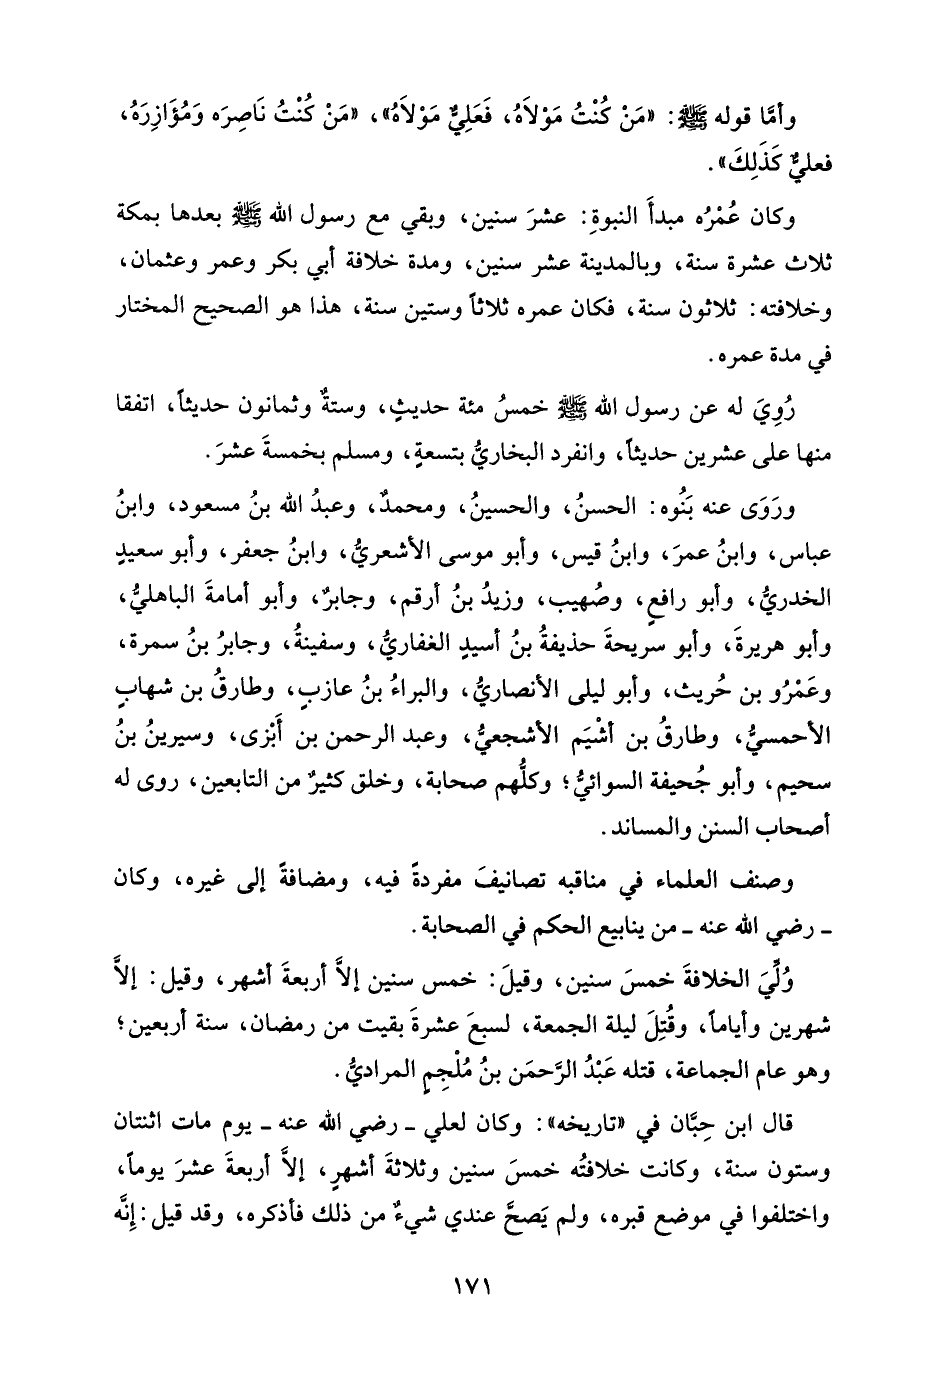 وأمَّا قوله ﷺ: «مَنْ كُنْتُ مَوْلاَهُ، فَعَلِيٌّ مَوْلاَهُ»، «مَنْ كُنْتُ نَاصِرَه وَمُؤَازِرَهُ،
فعليٌّ كَذَلِكَ».
وكان عُمْرُه مبدأَ النبوةِ: عشرَ سنين، وبقي مع رسول الله ﷺ بعدها بمكة
ثلاث عشرة سنة، وبالمدينة عشر سنين، ومدة خلافة أبي بكر وعمر وعثمان،
وخلافته: ثلاثون سنة، فكان عمره ثلاثاً وستين سنة، هذا هو الصحيح المختار
في مدة عمره.
رُوِيَ له عن رسول الله ﷺ خمسُ مئة حديثٍ، وستةٌ وثمانون حديثاً، اتفقا
منها على عشرين حديثاً، وانفرد البخاريُّ بتسعةٍ، ومسلم بخمسةَ عشرَ.
ورَوَى عنه بَنُوه: الحسنُ، والحسينُ، ومحمدٌ، وعبدُ الله بنُ مسعود، وابنُ
عباس، وابنُ عمرَ، وابنُ قيس، وأبو موسى الأشعريُّ، وابنُ جعفر، وأبو سعيدٍ
الخدريُّ، وأبو رافعٍ، وصُهيب، وزيدُ بنُ أرقم، وجابرٌ، وأبو أمامةَ الباهليُّ،
وأبو هريرةَ، وأبو سريحةَ حذيفةُ بنُ أسيدٍ الغفاريُّ، وسفينةُ، وجابرُ بنُ سمرة،
وعَمْرُو بن حُريث، وأبو ليلى الأنصاريُّ، والبراءُ بنُ عازبٍ، وطارقُ بن شهابٍ
الأحمسيُّ، وطارقُ بن أشْيَم الأشجعيُّ، وعبد الرحمن بن أَبْزى، وسيرينُ بنُ
سحيم، وأبو جُحيفة السوائيُّ؛ وكلُّهم صحابة، وخلق كثيرٌ من التابعين، روى له
أصحاب السنن والمساند.
وصنف العلماء في مناقبه تصانيفَ مفردةً فيه، ومضافةً إلى غيره، وكان
ـ رضي الله عنه ـ من ينابيع الحكم في الصحابة.
وُلِّيَ الخلافةَ خمسَ سنين، وقيلَ: خمس سنين إلاَّ أربعةَ أشهر، وقيل: إلاَّ
شهرين وأياماً، وقُتِلَ ليلة الجمعة، لسبعَ عشرةَ بقيت من رمضان، سنة أربعين؛
وهو عام الجماعة، قتله عَبْدُ الرَّحمَن بنُ مُلْجِمٍ المراديُّ.
قال ابن حِبَّان في «تاريخه»: وكان لعلي ـ رضي الله عنه ـ يوم مات اثنتان
وستون سنة، وكانت خلافتُه خمسَ سنين وثلاثةَ أشهرٍ، إلاَّ أربعةَ عشرَ يوماً،
واختلفوا في موضع قبره، ولم يَصحَّ عندي شيءٌ من ذلك فأذكره، وقد قيل: إنَّه
١٧١